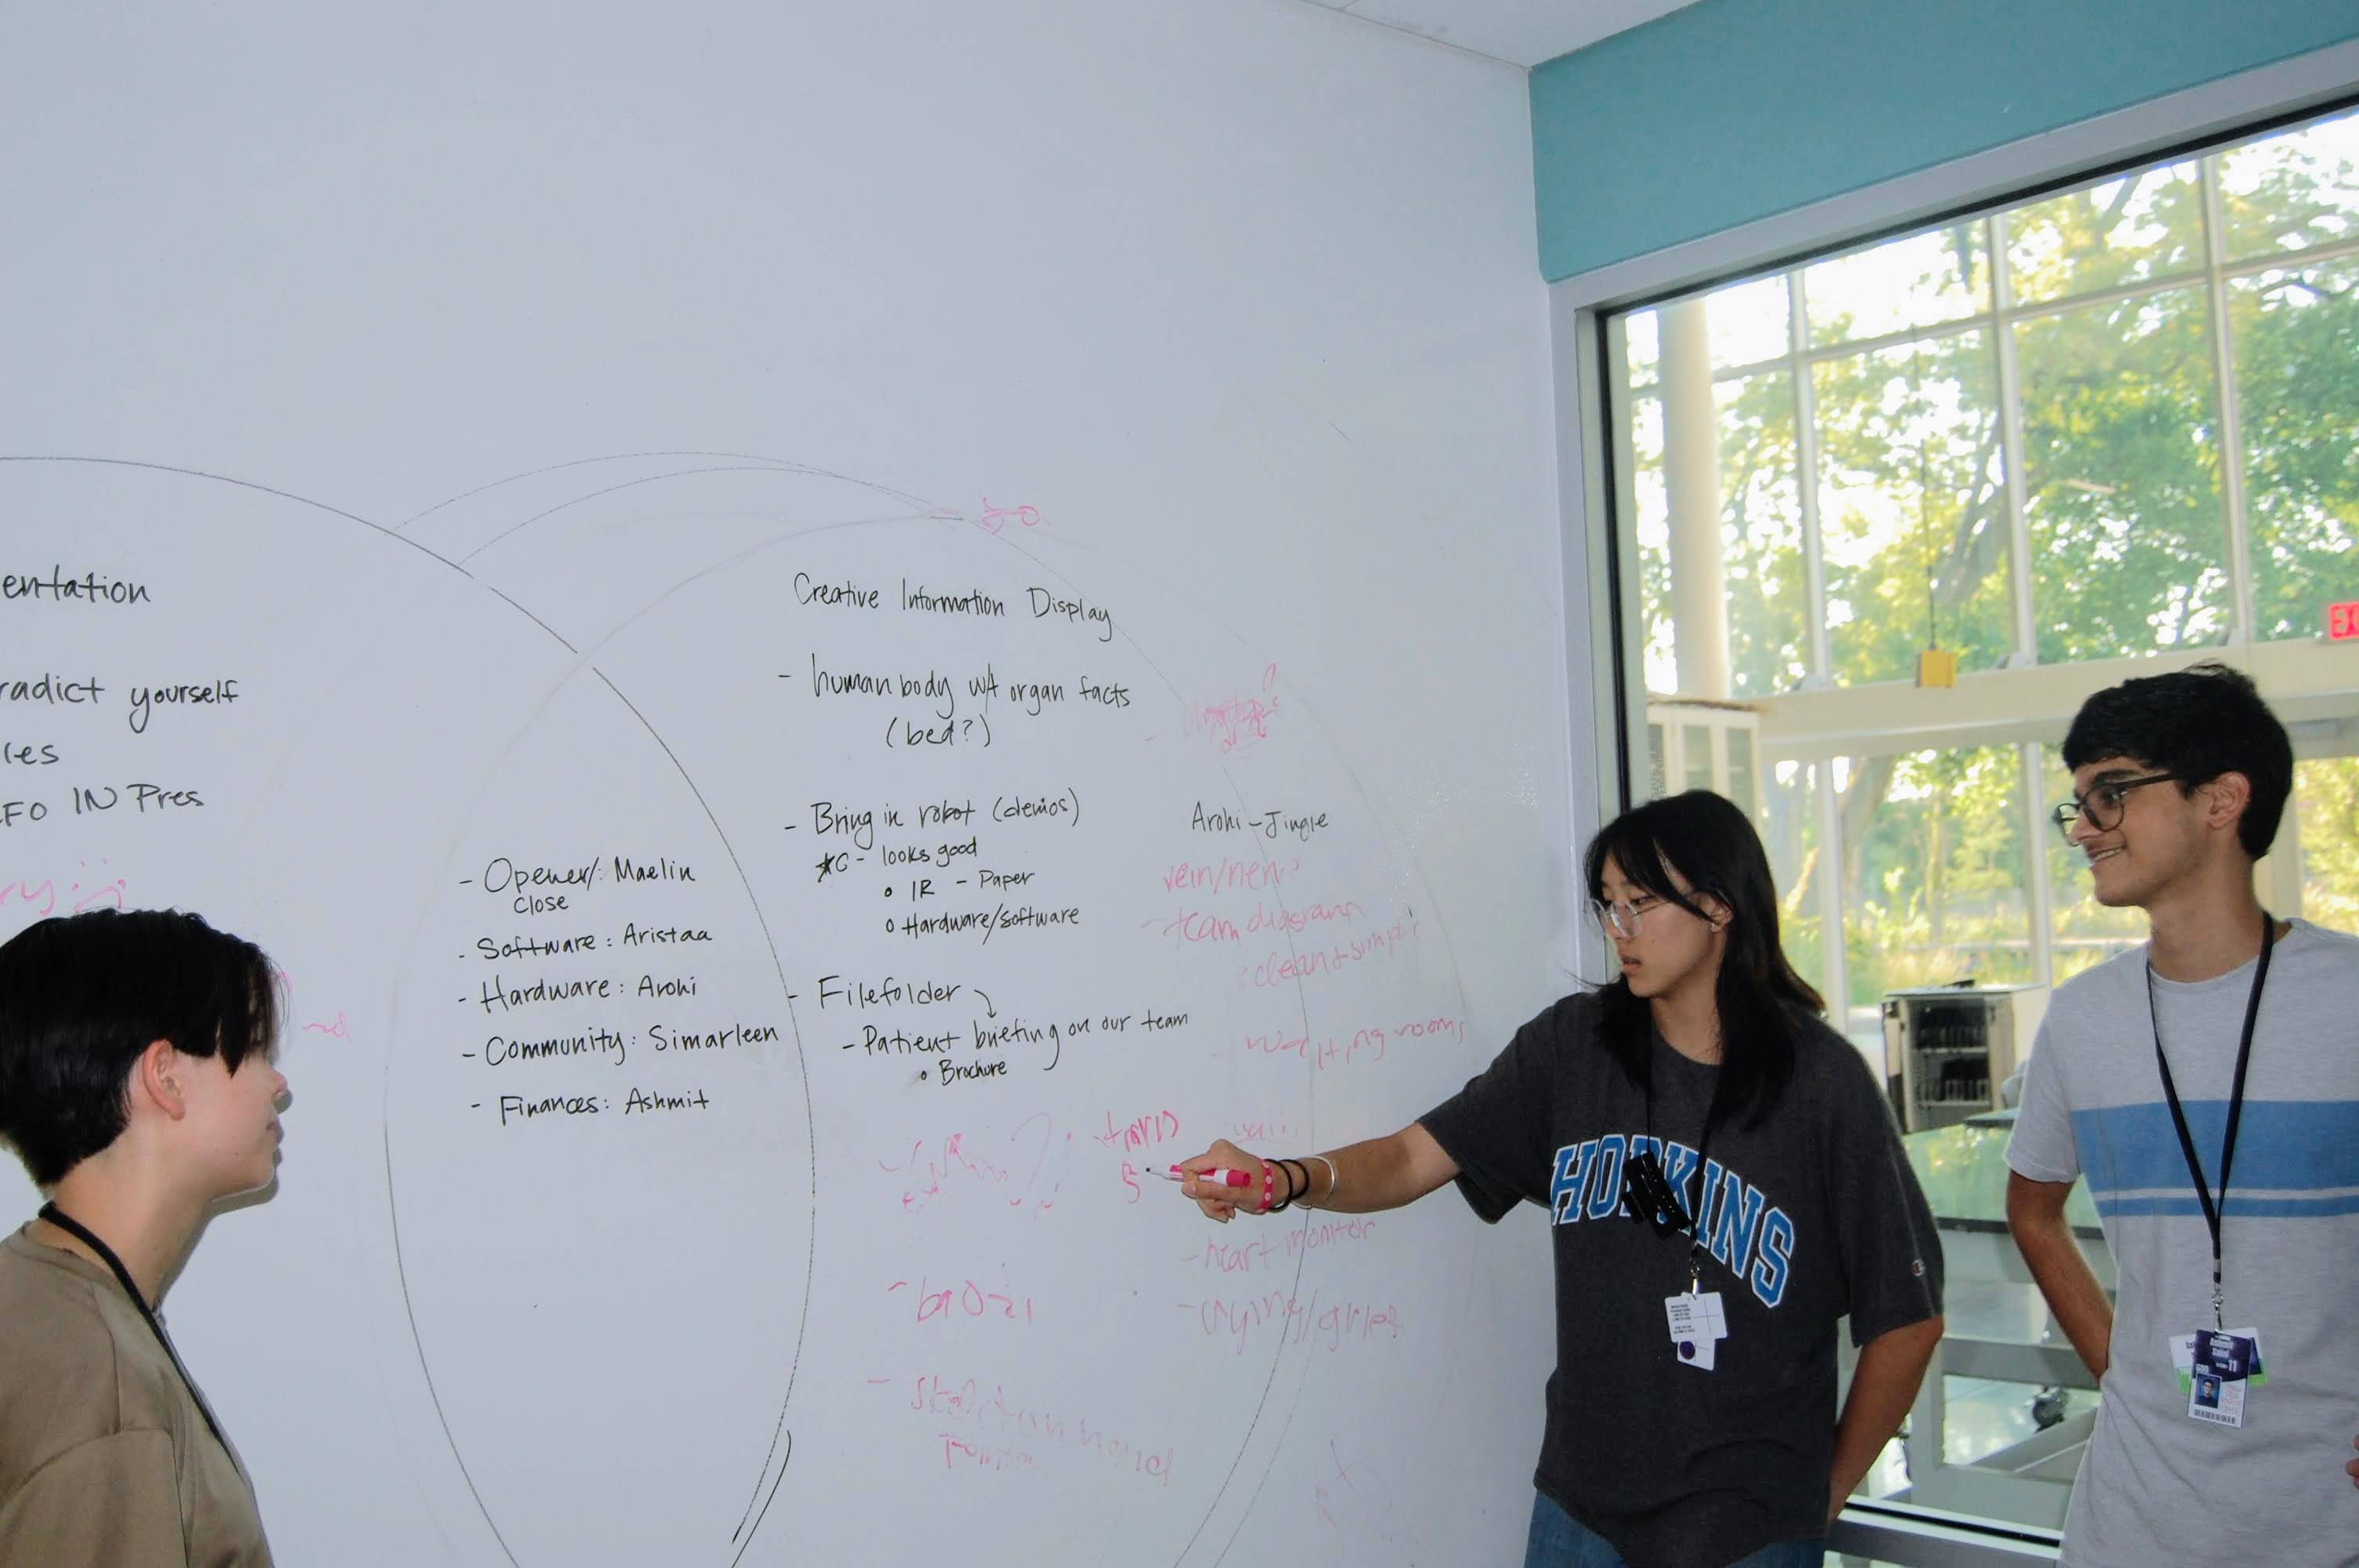 entation
radict yourself
les
FO IN Pres
- Opener/: Maelin
close
- Software: Aristaa
- Hardware: Arohi
- Community: Simarleen
- Finances: Ashmit
Creative Information Display
- human body w/ organ facts
(bed?)
- Bring in robot (demos)
looks good
• IR - Paper
• Hardware/software
- Filefolder
- Patient briefing on our team
• Brochure
Arohi - Jingle
vein/
- team diagram
clean + simple
- waiting rooms
- heart monitor
- crying/grief
HOPKINS
11